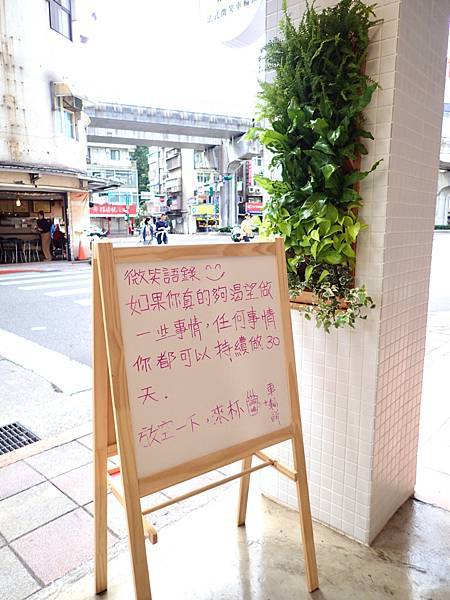 微笑語錄
如果你真的夠渴望做
一些事情，任何事情
你都可以持續做30
天．
放空一下，來杯